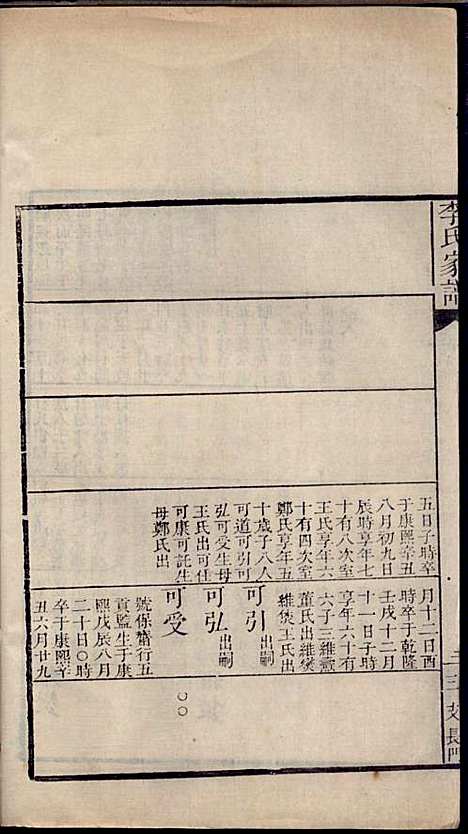 李氏家譜
五日子時卒
于康熙辛丑
八月初九日
辰時享年七
十有八次室
王氏享年六
十有四次室
鄭氏享年五
十歲子八八
可道可引可
弘可受生母
王氏出可仕
可康可託生
母鄭氏出
月十二日酉
時卒于乾隆
壬戌十二月
十一日子時
享年六十有
六子三維
董氏出維
維 王氏出
可引 出嗣
可弘 出嗣
可受 〇〇
號保齋行五
貢監生于康
熙戊辰八月
二十日〇時
卒于康熙辛
丑六月廿九
長門